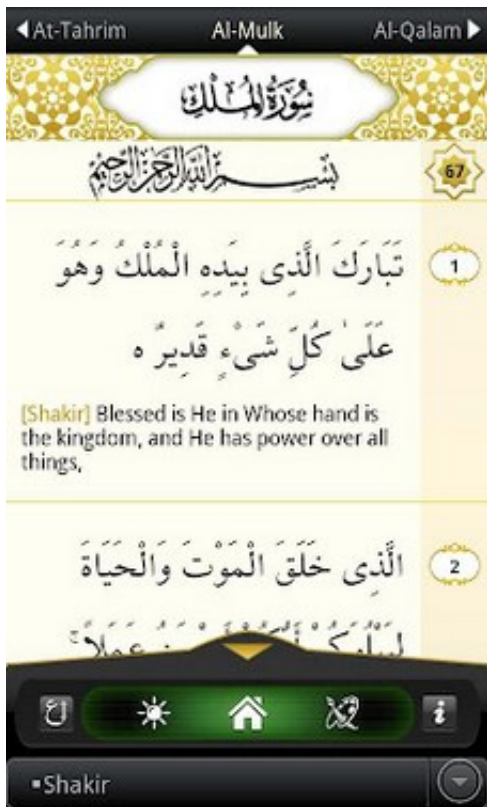 At-Tahrim Al-Mulk Al-Qalam
سُورَةُ الْمُلْكِ
بِسْمِ اللَّهِ الرَّحْمَٰنِ الرَّحِيمِ 67
تَبَارَكَ الَّذِى بِيَدِهِ الْمُلْكُ وَهُوَ 1
عَلَىٰ كُلِّ شَىْءٍ قَدِيرٌ ه
[Shakir] Blessed is He in Whose hand is
the kingdom, and He has power over all
things,
الَّذِى خَلَقَ الْمَوْتَ وَالْحَيَاةَ 2
لِيَبْلُوَكُمْ أَيُّكُمْ أَحْسَنُ عَمَلًا ۚ
i
▪Shakir